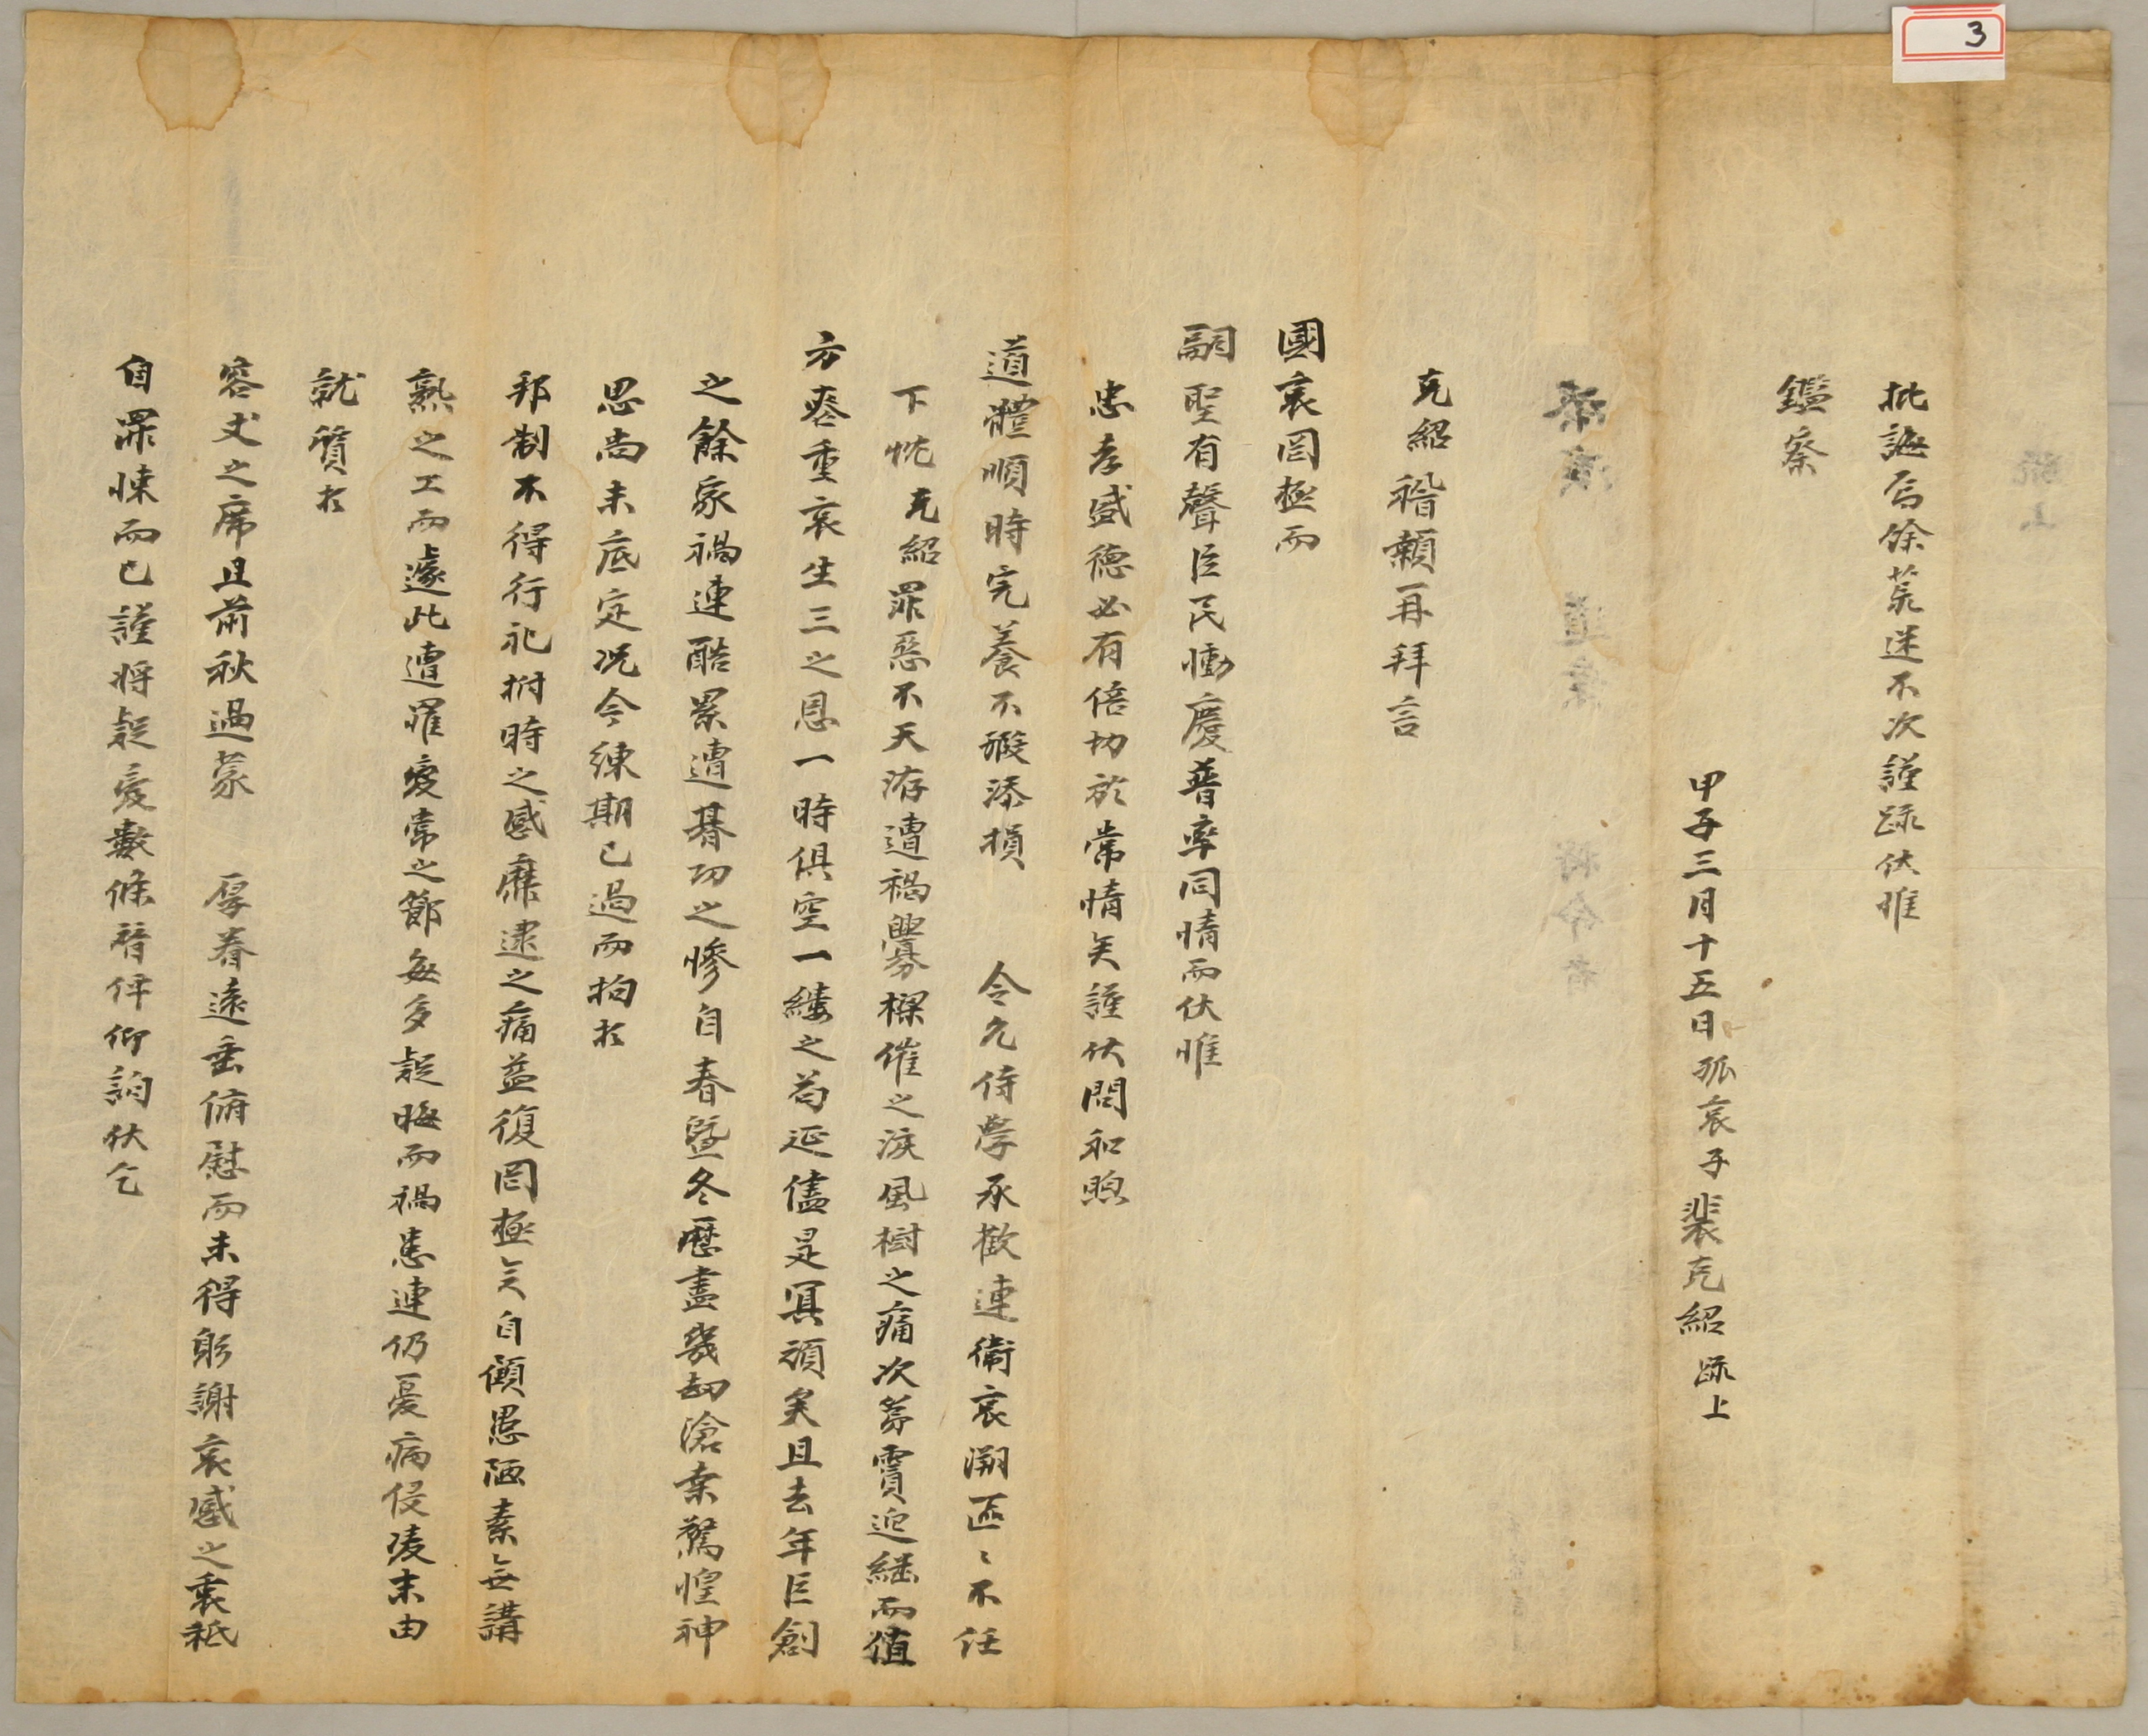 3
克紹稽顙再拜言
國哀罔極而
嗣聖有聲臣民慟慶普率同情而伏惟
忠孝盛德必有倍切於常情矣謹伏問和煦
道體順時完養不瑕添損 令允侍學承歡連衛哀溯區〻不任
下忱克紹罪惡不天洊遭禍釁樑催之淚風樹之痛次第賷迎繼而値
方喪重哀生三之恩一時俱空一縷之苟延儘是冥頑矣且去年巨創
之餘家禍連酷累遭朞功之慘自春曁冬歷盡幾劫滄桒驚惶神
思尚未底定况今練期已過而拘於
邦制不得行祀拊時之感靡逮之痛益復罔極矣自顧愚陋素無講
熟之工而遽此遭罹變常之節每多疑晦而禍患連仍憂病侵凌末由
就質於
容丈之席且前秋過蒙 厚眷遠垂俯慰而未得躬謝哀感之衷秪
自罪悚而已謹將疑變數條替伻仰詢伏乞
批誨焉餘荒迷不次謹疏伏惟
鑑察
甲子三月十五日孤哀子裴克紹 疏上